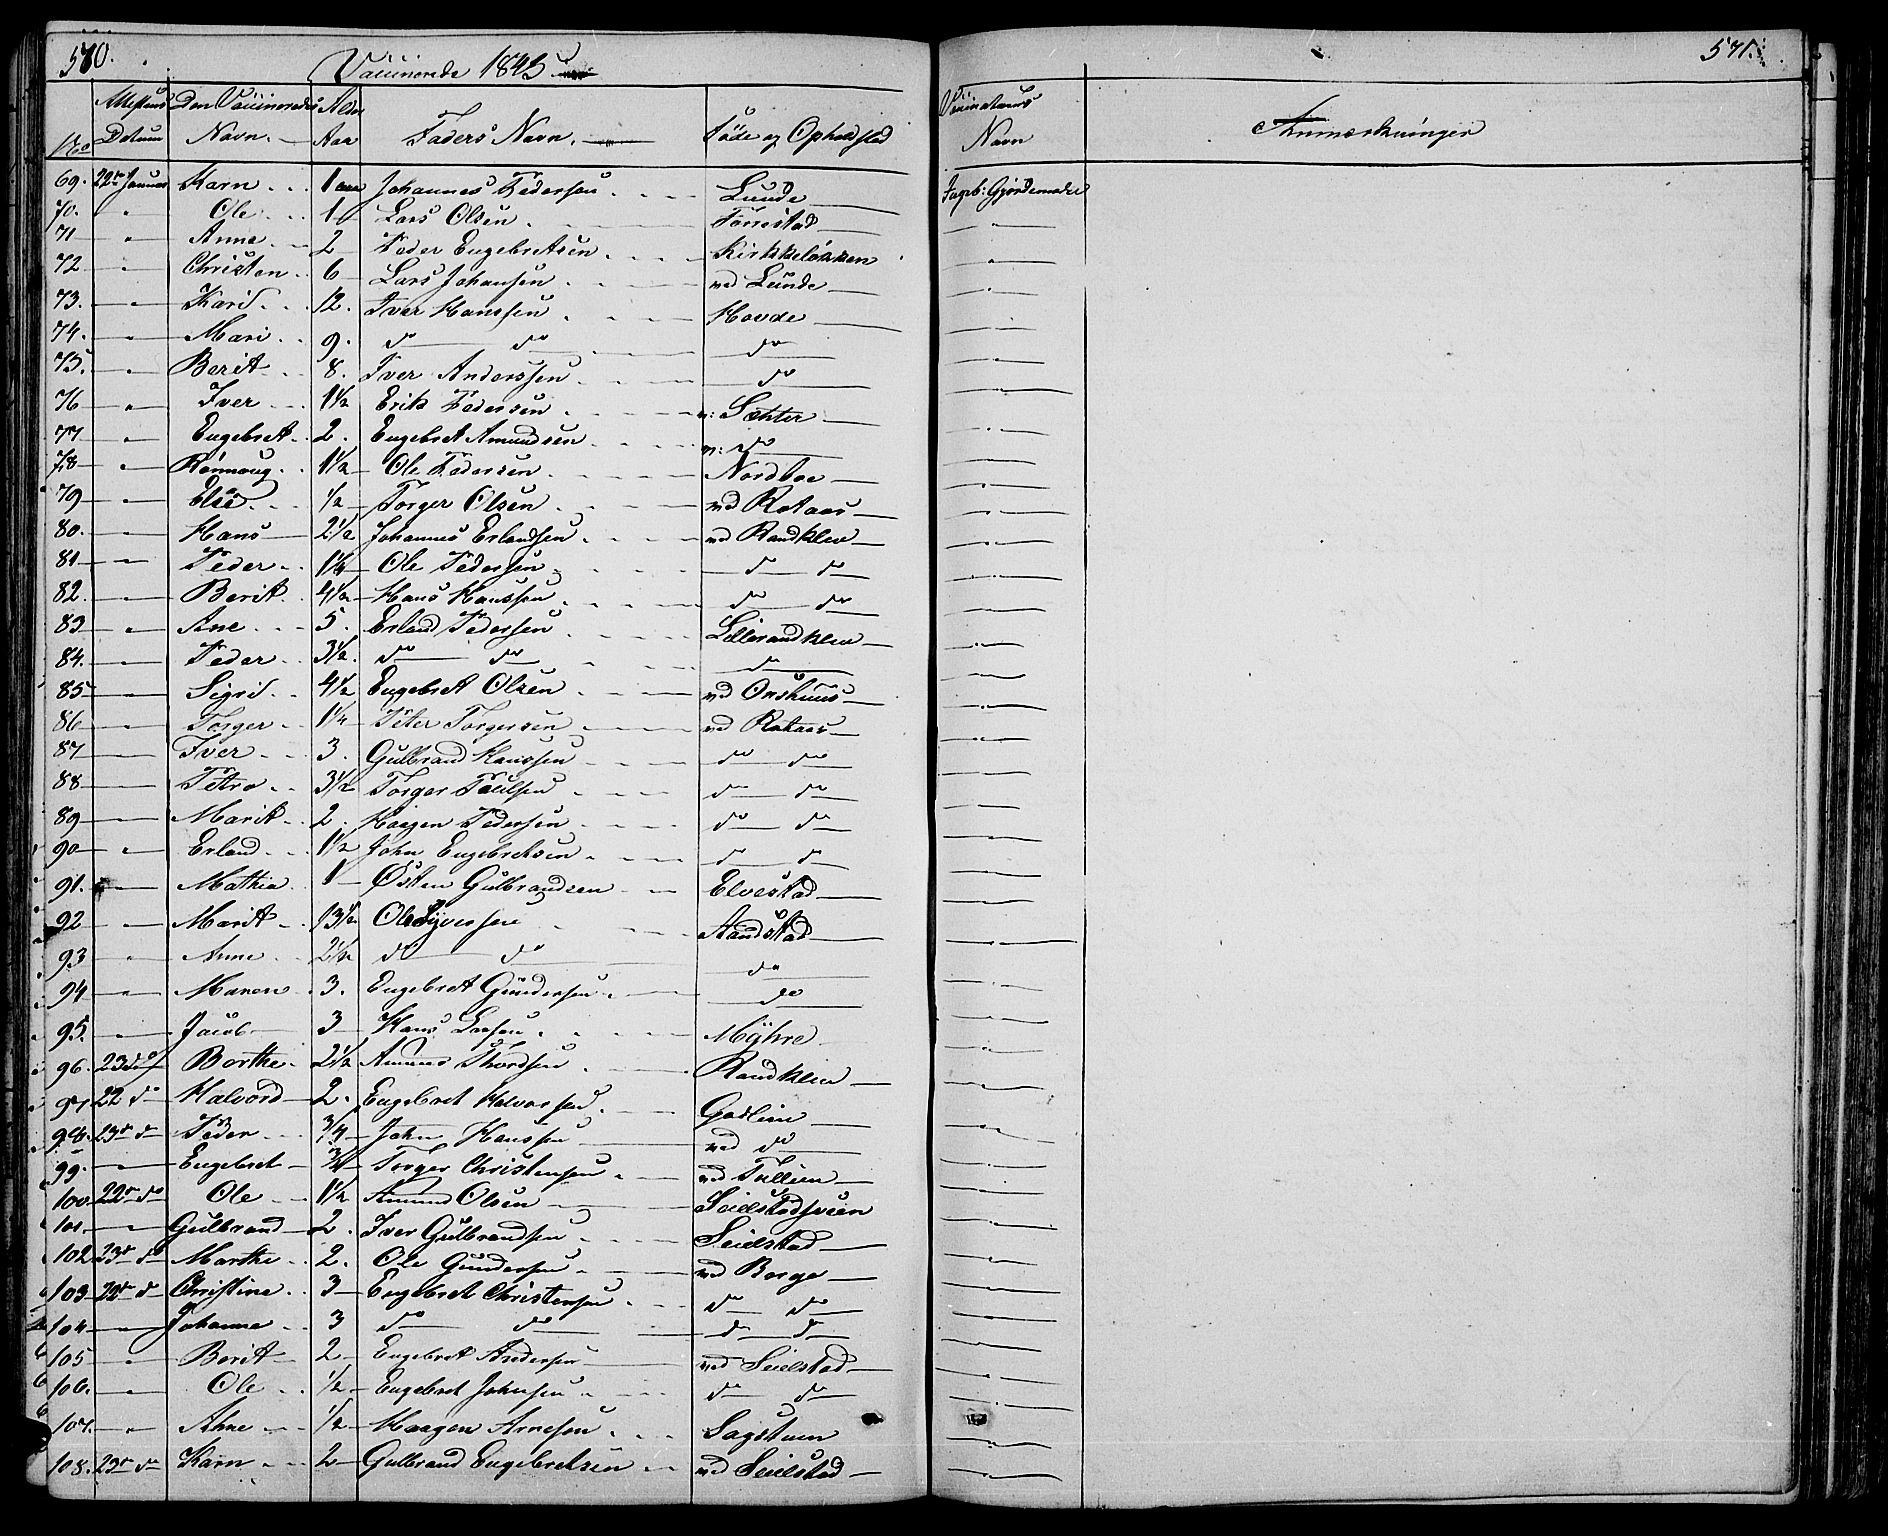 570.
Vaccinerede 1843
571.
Attestens Den Vaccineredes Alder
No Datum Navn. Aar Faders Navn. Føde og Opholdsted
Vaccinateurs Navn
Anmærkninger
69. 22de Januar Karn 1 Johannes Pedersen Lunde Ingeb: Gjördemoder
70. " Ole 1 Lars Olsen Forrestad
71 " Anne 2 Peder Engebretsen Kirkkeløkken
72 " Christen 6 Lars Johansen ved Lunde
73. " Kari 12. Iver Hanssen Hovde
74. " Mari 9. do do do
75. " Berit 8. Iver Anderssen do
76 " Iver 1½ Erik Pedersen v: Sæhter
77 " Engebret 2. Engebret Amundsen v: do
78 " Rønnoug 1½ Ole Pedersen Nordboe
79 " Else ½ Torger Olsen ved Rotaas
80. " Hans 2½ Johannes Erlandsen ved Randklev
81 " Peder 1¼ Ole Pedersen do do
82. " Berit 4½ Hans Hanssen do do
83 " Ane 5. Erland Pedersen Lillerandklev
84. " Peder 3½ do do do
85 Sigrid 4½ Engebret Olsen ved Onshuus
86 Torger 1¼ Peter Torgersen ved Rotaas
87 Iver 3. Gulbrand Hanssen do do
88 Petra 3½ Torger Poulsen do do
89 " Marit 2. Haagen Pedersen do do
90 " Erland 1½ John Engebretsen do do
91. " Mathia 1 Østen Gulbrandsen Elvestad
92 " Marit 13½ Ole Syversen Aandstad
93 " Anne 2½ do do do
94 " Maren 3. Engebret Gundersen do
95. " Jacob 3 Hans Myhre
96. 23 do Borthe 2½ Thordsen Randklev
97 22 do Halvord 2. Engebret Halvorsen Goslien
98. 23de do Peder ¾ John Hanssen ved do
99. Engebret ¾ Torger Christensen ved
100. 22de do Ole 1½ Amund Olsen Seielstadsveien
101. " Gulbrand 2. Iver Gulbrandsen Seielstad
102 23de do Marthe 2. Ole Gundersen ved Borge
103 22de do Christine 3 Engebret Christensen do do
104 " Johanne 3 do do do do
105 " Berit 2 Engebret Andersen ved Seielstad
106. " Ole ½ Engebret Johnsen do do
107. " Ahne ½ Haagen Arnesen Sagstuen
108. 23de do Karn 2 Gulbrand Engebretsen ved Seielstad